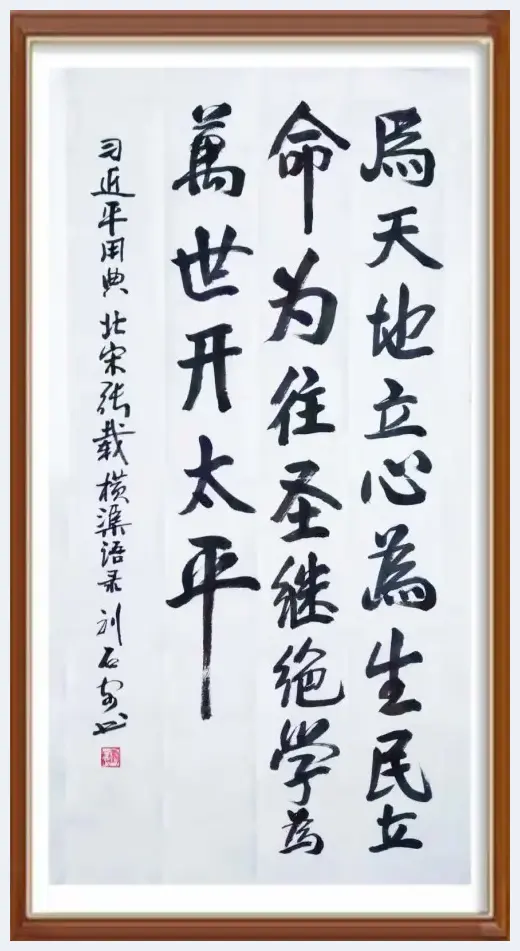 為天地立心為生民立
命为往圣继绝学為
萬世开太平
习近平用典 北宋张载横渠语录 刘石书